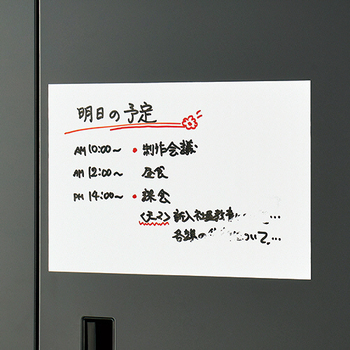 明日の予定
AM 10:00～ ・制作会議
AM 12:00～ 昼食
PM 14:00～ ・課会
<テーマ> 新入社員教育 …
各課の について…